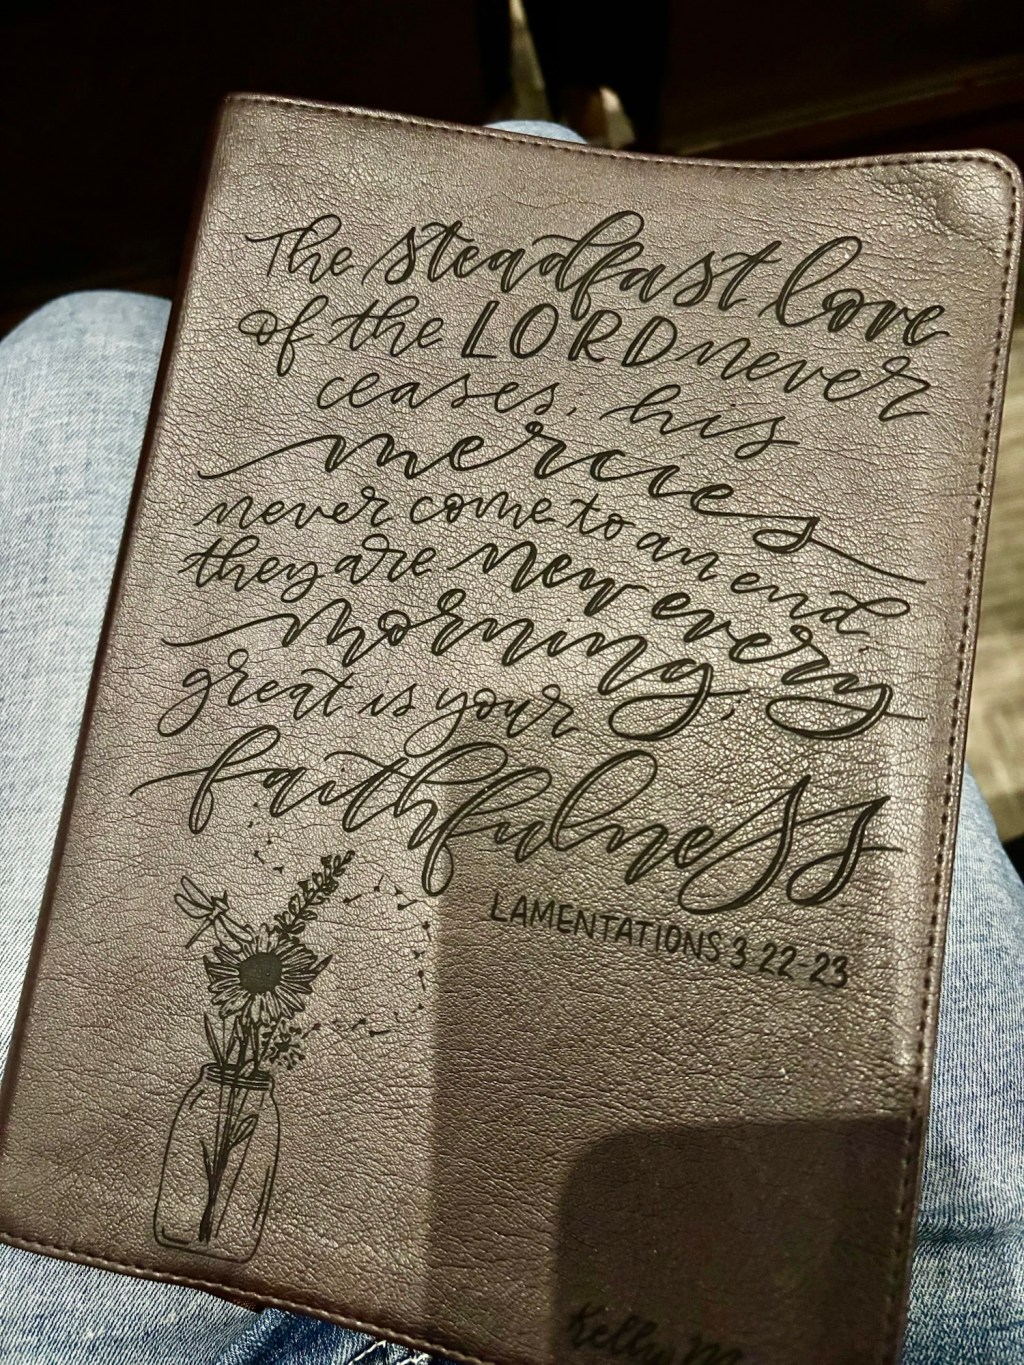 The steadfast love
of the LORD never
ceases; his
mercies
never come to an end;
they are new every
morning;
great is your
faithfulness
LAMENTATIONS 3:22-23
Kelly M